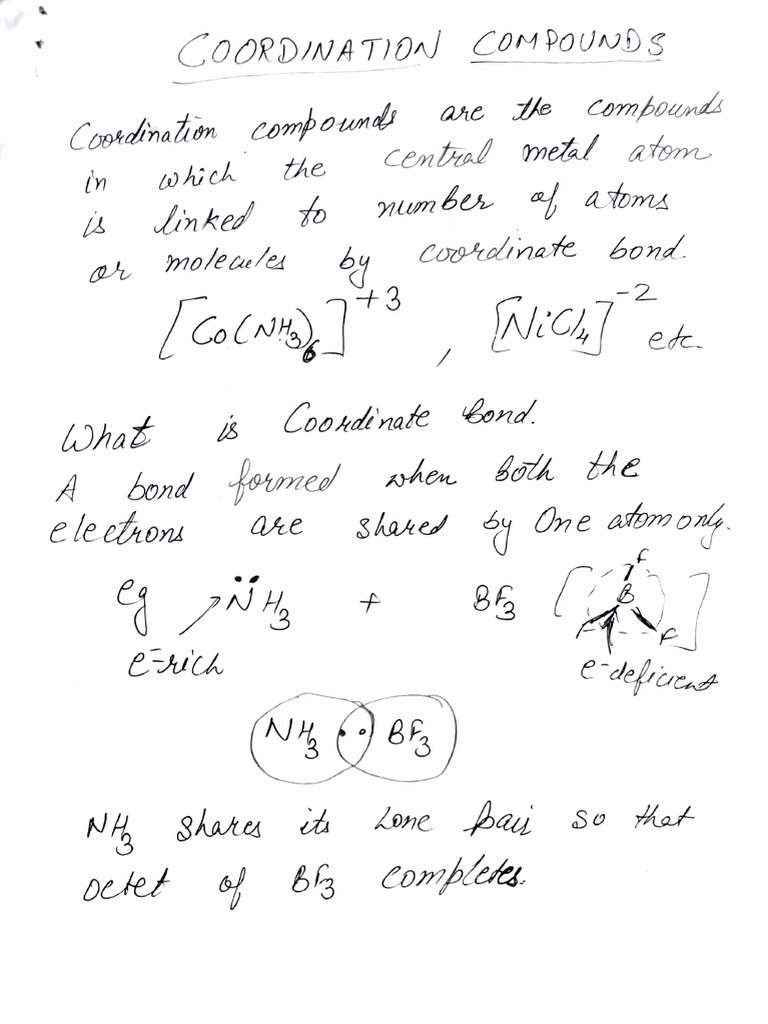 COORDINATION COMPOUNDS
Coordination compounds are the compounds
in which the central metal atom
is linked to number of atoms
or molecules by coordinate bond.
[Co(NH3)6]+3 , [NiCl4]-2 etc.
What is Coordinate Bond.
A bond formed when both the
electrons are shared by One atom only.
eg N̈H3 + BF3 [F B F F]
e-rich e-deficient
NH3 •• BF3
NH3 shares its Lone pair so that
octet of BF3 completes.